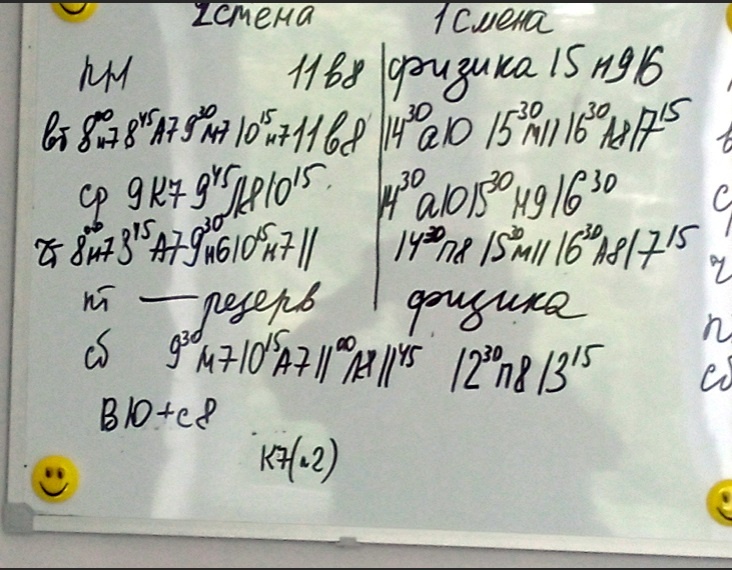 2 смена 1 смена
пн 11 в8 физика 15 н9 16
вт 8⁰⁰ н7 8⁴⁵ А7 9³⁰ м7 10¹⁵ н7 11 в8 14³⁰ а10 15³⁰ м11 16³⁰ л8 17¹⁵
ср 9 К7 9⁴⁵ л8 10¹⁵ 14³⁰ а10 15³⁰ н9 16³⁰
чт 8⁰⁰ н7 8⁴⁵ А7 9³⁰ н6 10¹⁵ н7 11 14³⁰ п8 15³⁰ м11 16³⁰ л8 17¹⁵
пт — резерв физика
сб 9³⁰ м7 10¹⁵ А7 11⁰⁰ л8 11⁴⁵ 12³⁰ п8 13¹⁵
В10+с8
К7(л2)